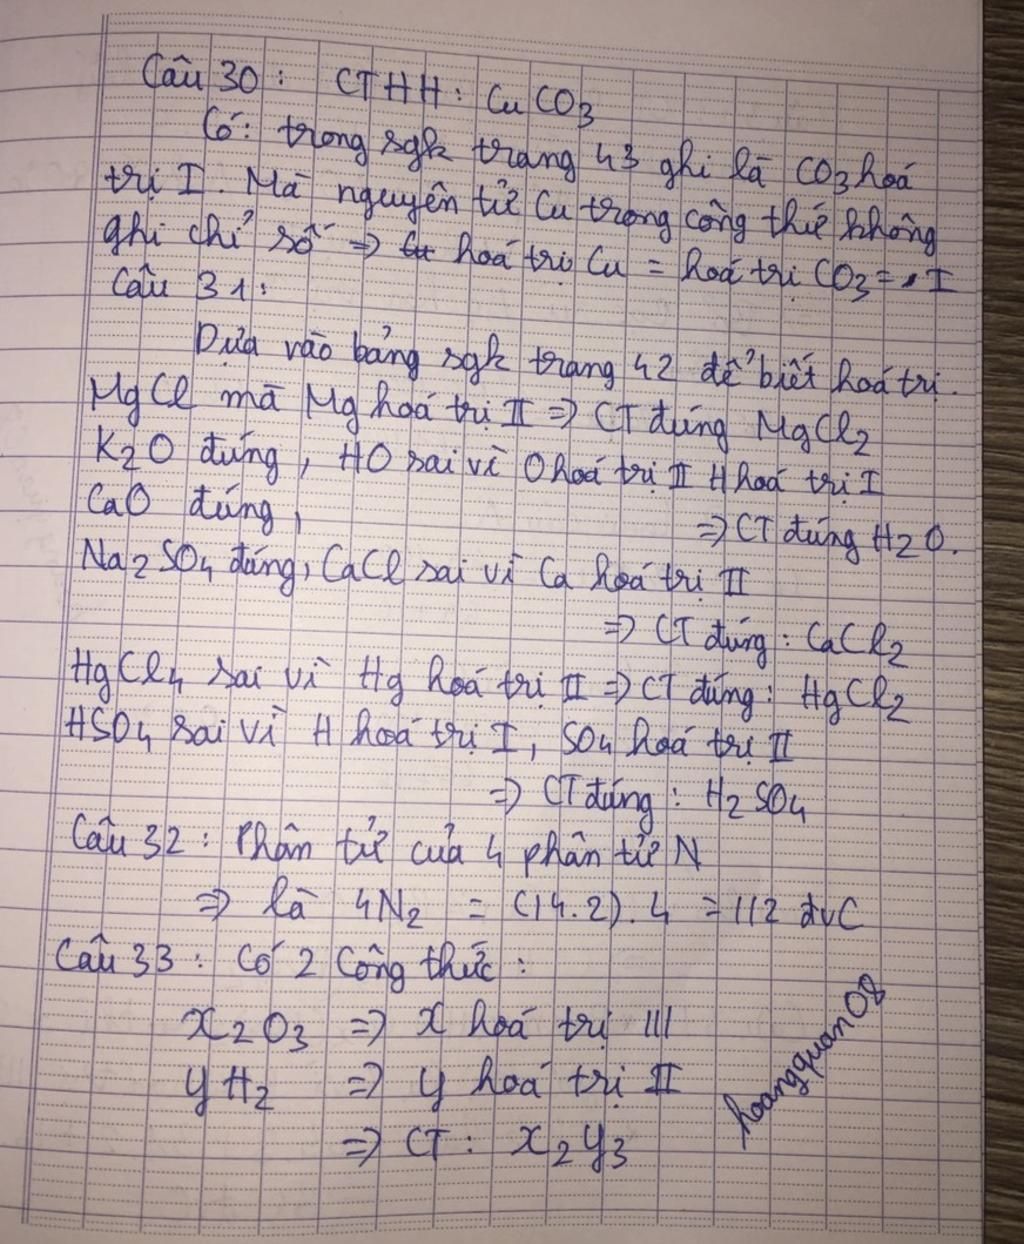 Câu 30 : CTHH : CuCO3
Có : trong sgk trang 43 ghi là CO3 hoá
trị I. Mà nguyên tử Cu trong công thứ không
ghi chỉ số => hoá trị Cu = hoá trị CO3 = I
Câu 31 :
Dựa vào bảng sgk trang 42 để biết hoá trị.
MgCl mà Mg hoá trị II => CT đúng MgCl2
K2O đúng, HO sai vì O hoá trị II H hoá trị I
CaO đúng, => CT đúng H2O.
Na2SO4 đúng, CaCl sai vì Ca hoá trị II
=> CT đúng : CaCl2
HgCl4 sai vì Hg hoá trị II => CT đúng : HgCl2
HSO4 sai vì H hoá trị I, SO4 hoá trị II
=> CT đúng : H2SO4
Câu 32 : Phân tử của 4 phân tử N
=> là 4N2 = (14.2).4 = 112 đvC
Câu 33 : Có 2 Công thức :
x2O3 => x hoá trị III
yH2 => y hoá trị II
=> CT : x2y3
hoangquan08